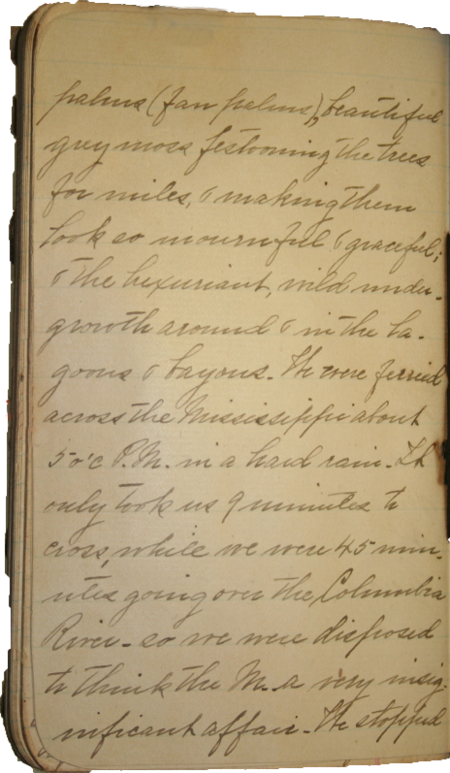 palms (fan palms), beautiful
grey moss festooning the trees
for miles, & making them
look so mournful & graceful;
& the luxuriant, wild under-
growth around & in the la-
goons & bayous. We were ferried
across the Mississippi about
5 o'c P.M. in a hard rain. It
only took us 9 minutes to
cross, while we were 45 min-
utes going over the Columbia
River - so we were disposed
to think the M. a very insig-
nificant affair. We stopped